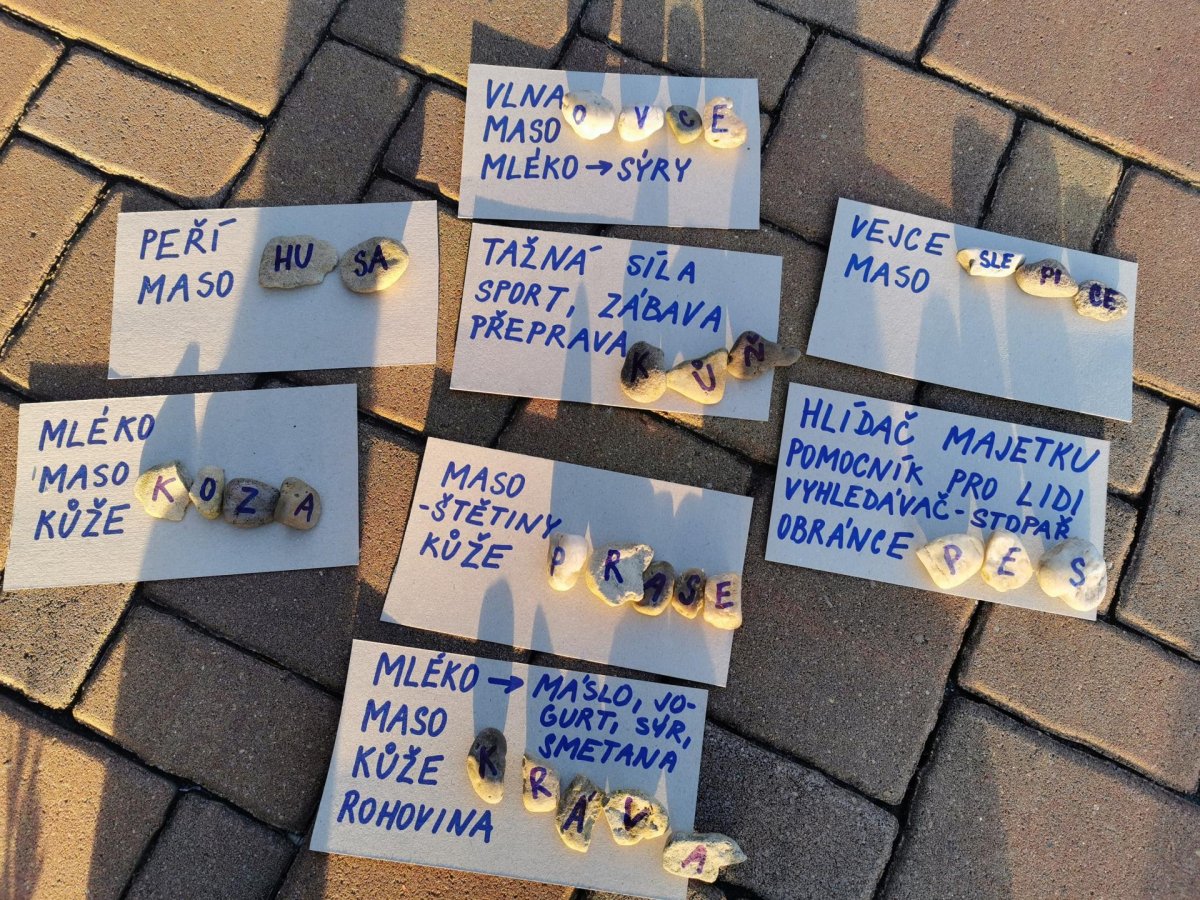 VLNA OVCE
MASO
MLÉKO → SÝRY
PEŘÍ HUSA
MASO
TAŽNÁ SÍLA
SPORT, ZÁBAVA
PŘEPRAVA
KŮŇ
VEJCE SLEPICE
MASO
MLÉKO
MASO KOZA
KŮŽE
MASO
-ŠTĚTINY
KŮŽE PRASE
HLÍDAČ MAJETKU
POMOCNÍK PRO LIDI
VYHLEDÁVAČ-STOPAŘ
OBRÁNCE PES
MLÉKO → MÁSLO, JO-
GURT, SÝR,
SMETANA
MASO
KŮŽE
ROHOVINA
KRÁVA